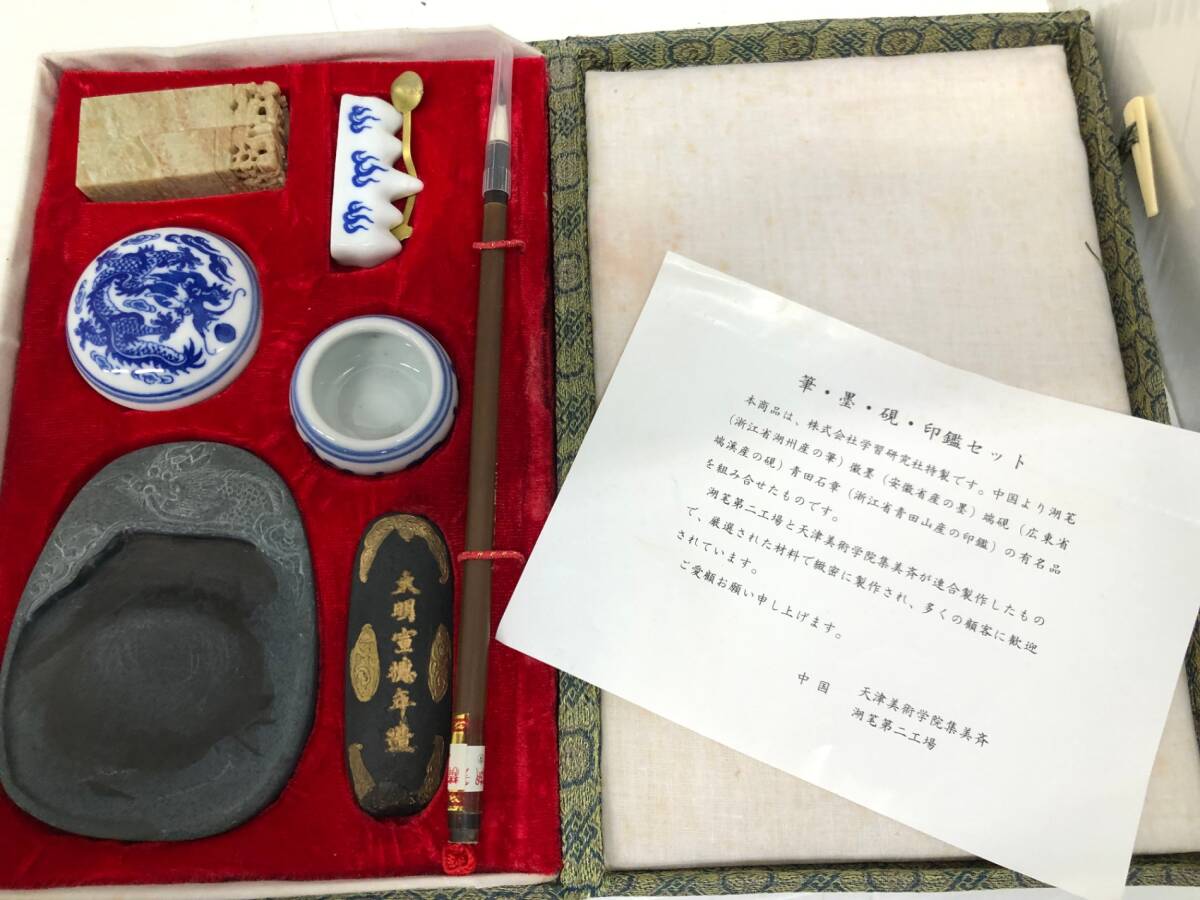 大明宣徳年造
筆・墨・硯・印鑑セット
本商品は、株式会社学習研究社特製です。中国より湖笔
（浙江省湖州産の筆）徽墨（安徽省産の墨）端硯（広東省
端溪産の硯）青田石章（浙江省青田山産の印鑑）の有名品
を組み合せたものです。
湖笔第二工場と天津美術学院集美斉が連合製作したもの
で、厳選された材料で緻密に製作され、多くの顧客に歓迎
されています。
ご愛顧お願い申し上げます。
中国 天津美術学院集美斉
湖笔第二工場